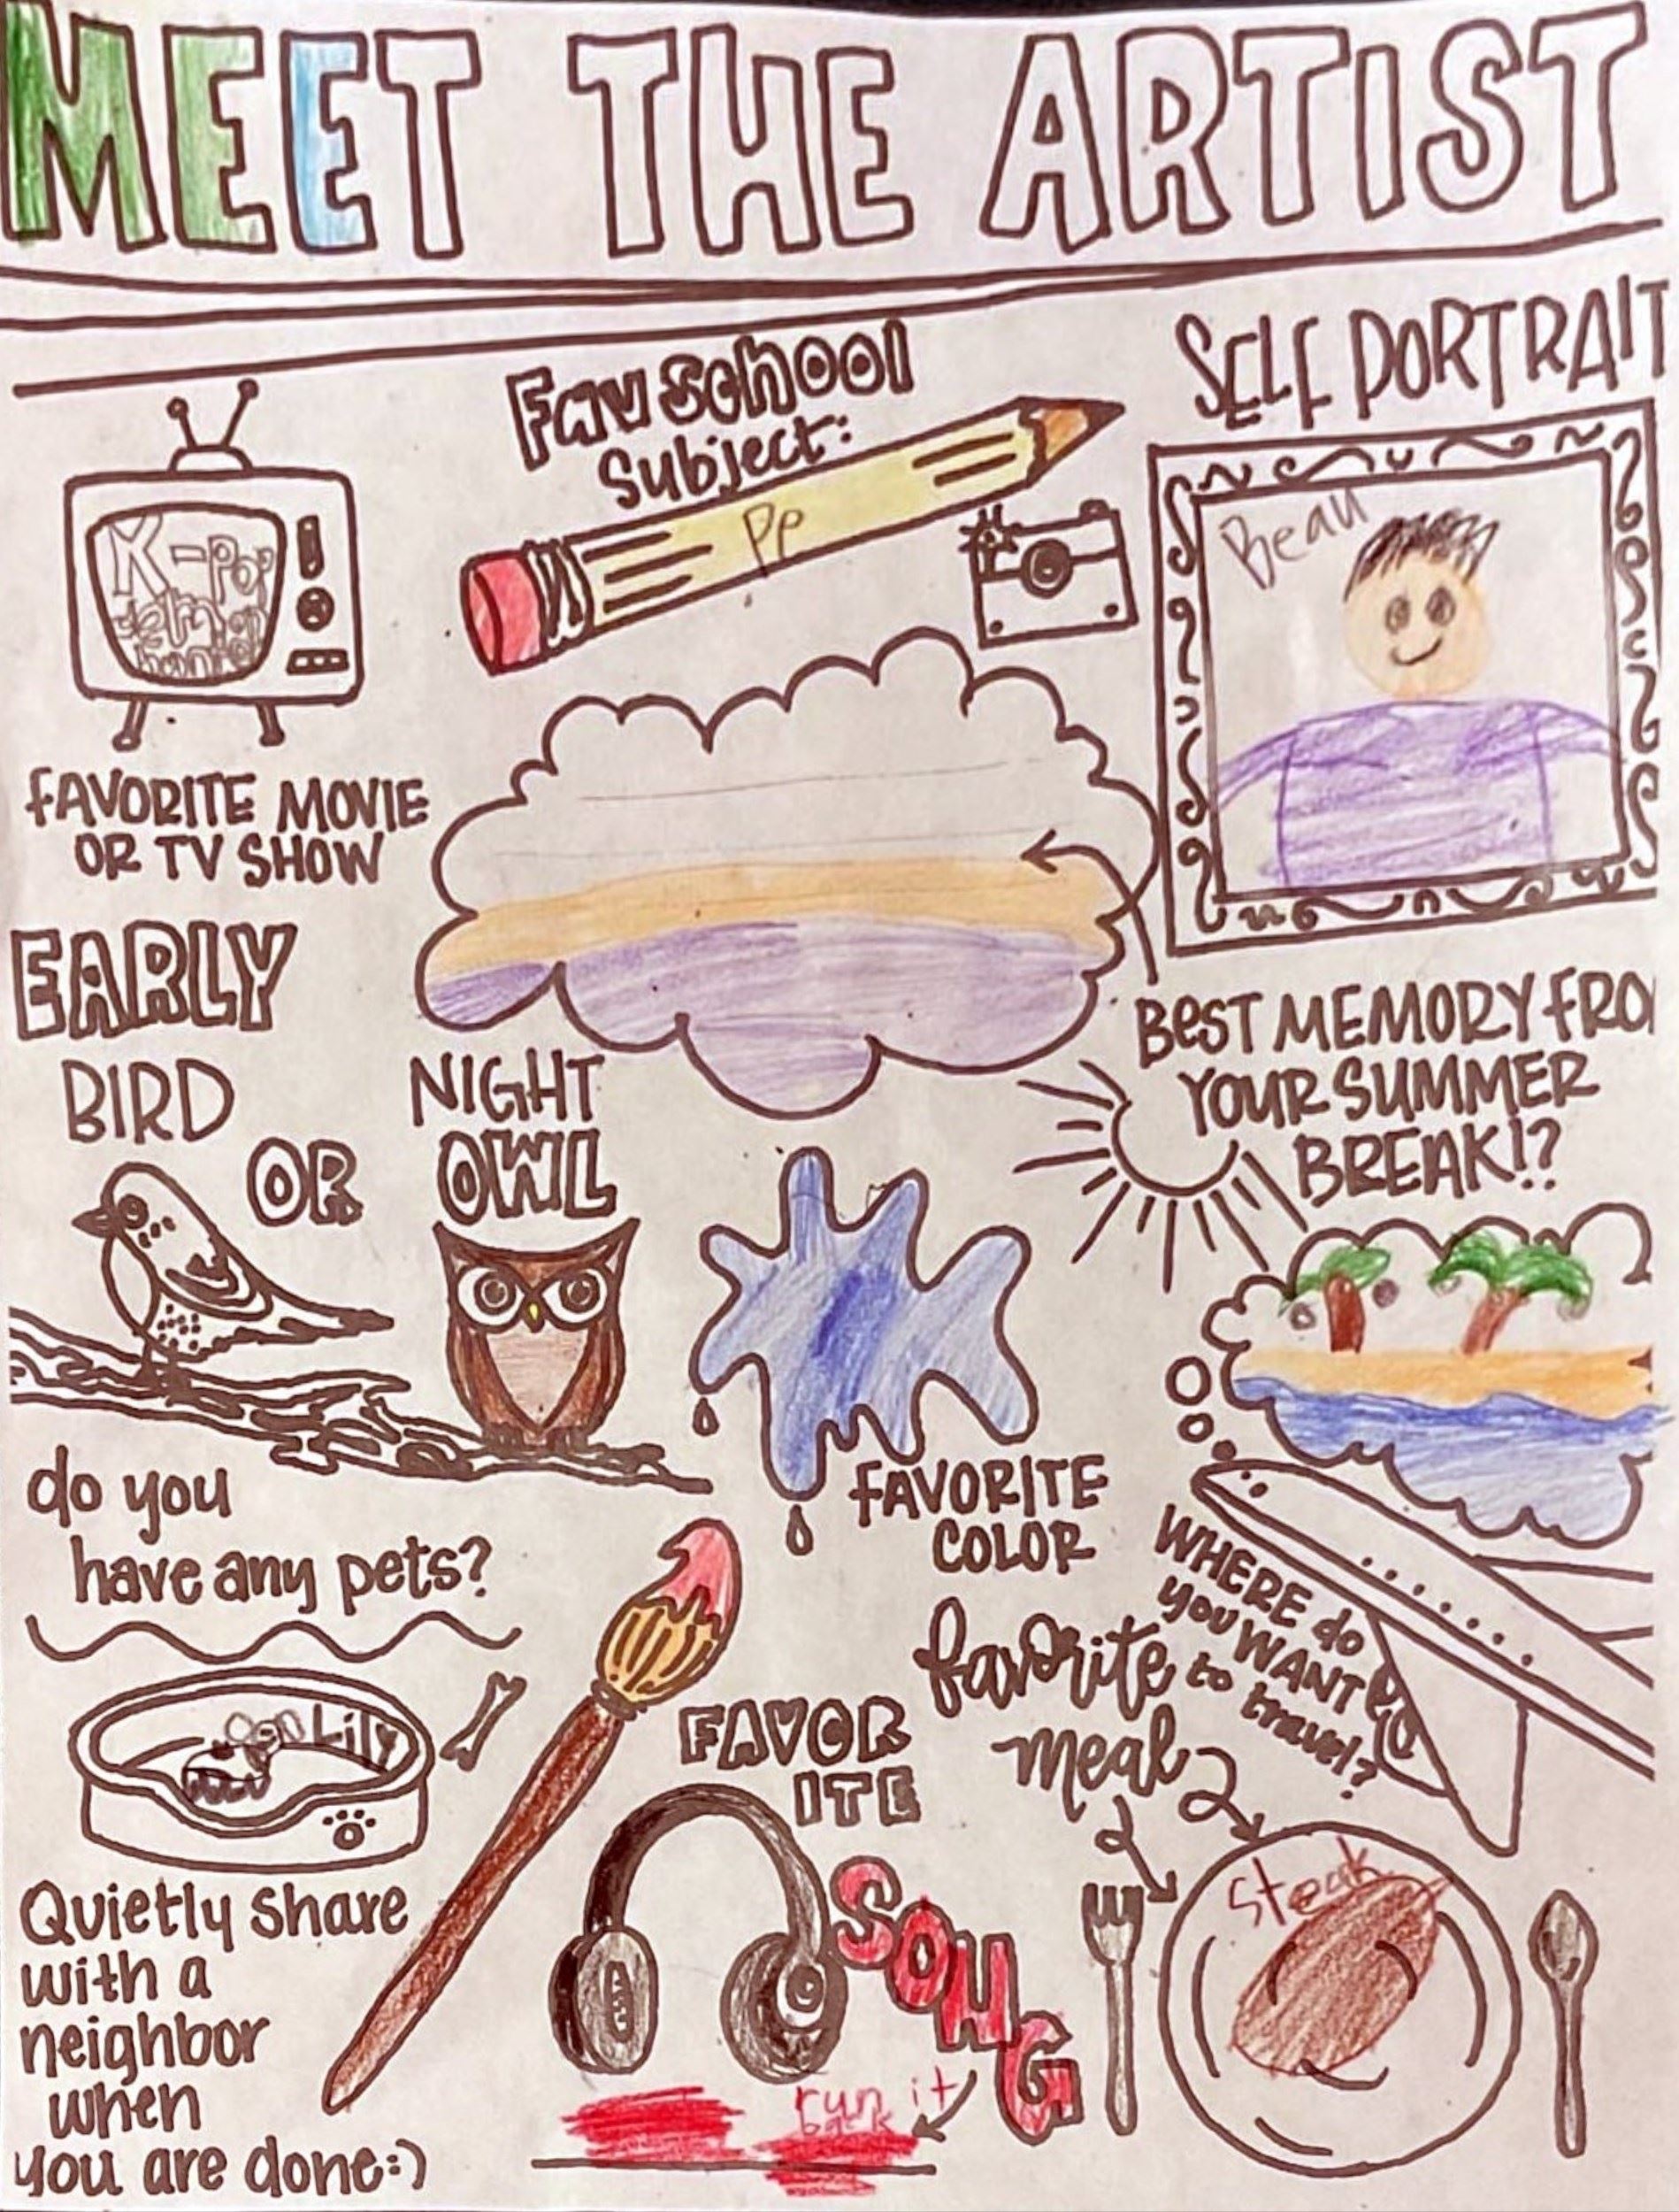 MEET THE ARTIST
Fav school
subject:
Pp
SELF PORTRAIT
Beau
K-Pop
demon
hunter
FAVORITE MOVIE
OR TV SHOW
EARLY
BIRD
OR
NIGHT
OWL
BEST MEMORY FRO
YOUR SUMMER
BREAK!?
FAVORITE
COLOR
do you
have any pets?
Lily
WHERE do
you WANT
to travel?
favorite
meal
Steak
FAVOR
ITE
SONG
run it
back
Quietly share
with a
neighbor
when
you are done:)